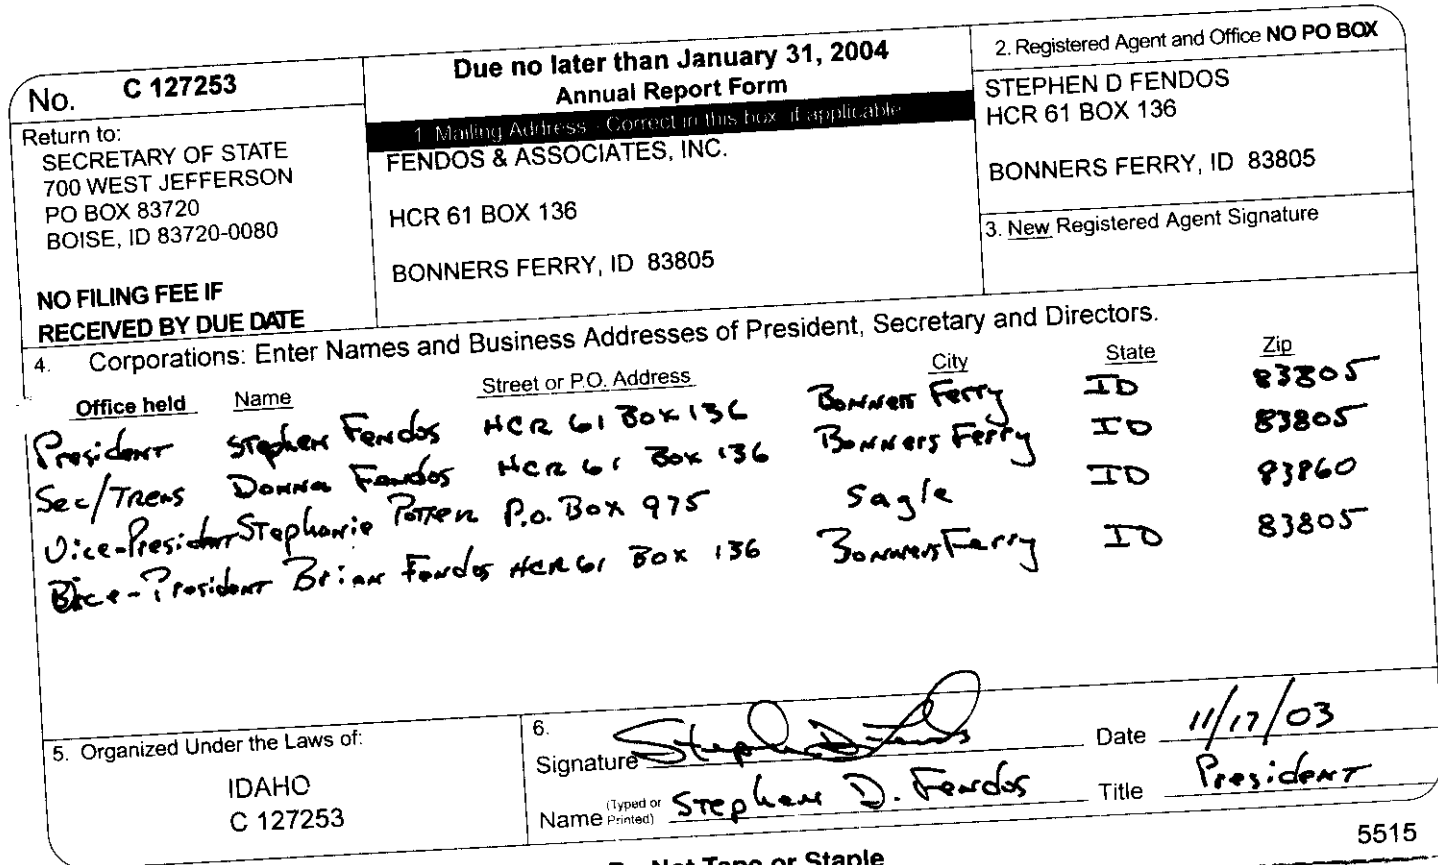 No. C 127253
Return to:
SECRETARY OF STATE
700 WEST JEFFERSON
PO BOX 83720
BOISE, ID 83720-0080
NO FILING FEE IF
RECEIVED BY DUE DATE
Due no later than January 31, 2004
Annual Report Form
1. Mailing Address - Correct in this box, if applicable
FENDOS & ASSOCIATES, INC.
HCR 61 BOX 136
BONNERS FERRY, ID 83805
2. Registered Agent and Office NO PO BOX
STEPHEN D FENDOS
HCR 61 BOX 136
BONNERS FERRY, ID 83805
3. New Registered Agent Signature
4. Corporations: Enter Names and Business Addresses of President, Secretary and Directors.
Office held Name Street or P.O. Address City State Zip
President Stephen Fendos HCR 61 Box 136 Bonners Ferry ID 83805
Sec/Treas Donna Fendos HCR 61 Box 136 Bonners Ferry ID 83805
Vice-President Stephanie Potter P.O. Box 975 Sagle ID 83860
Vice-President Brian Fendos HCR 61 Box 136 Bonners Ferry ID 83805
5. Organized Under the Laws of:
IDAHO
C 127253
6.
Signature Stephen D Fendos Date 11/17/03
Name (Typed or Printed) Stephen D. Fendos Title President
Do Not Tape or Staple
5515